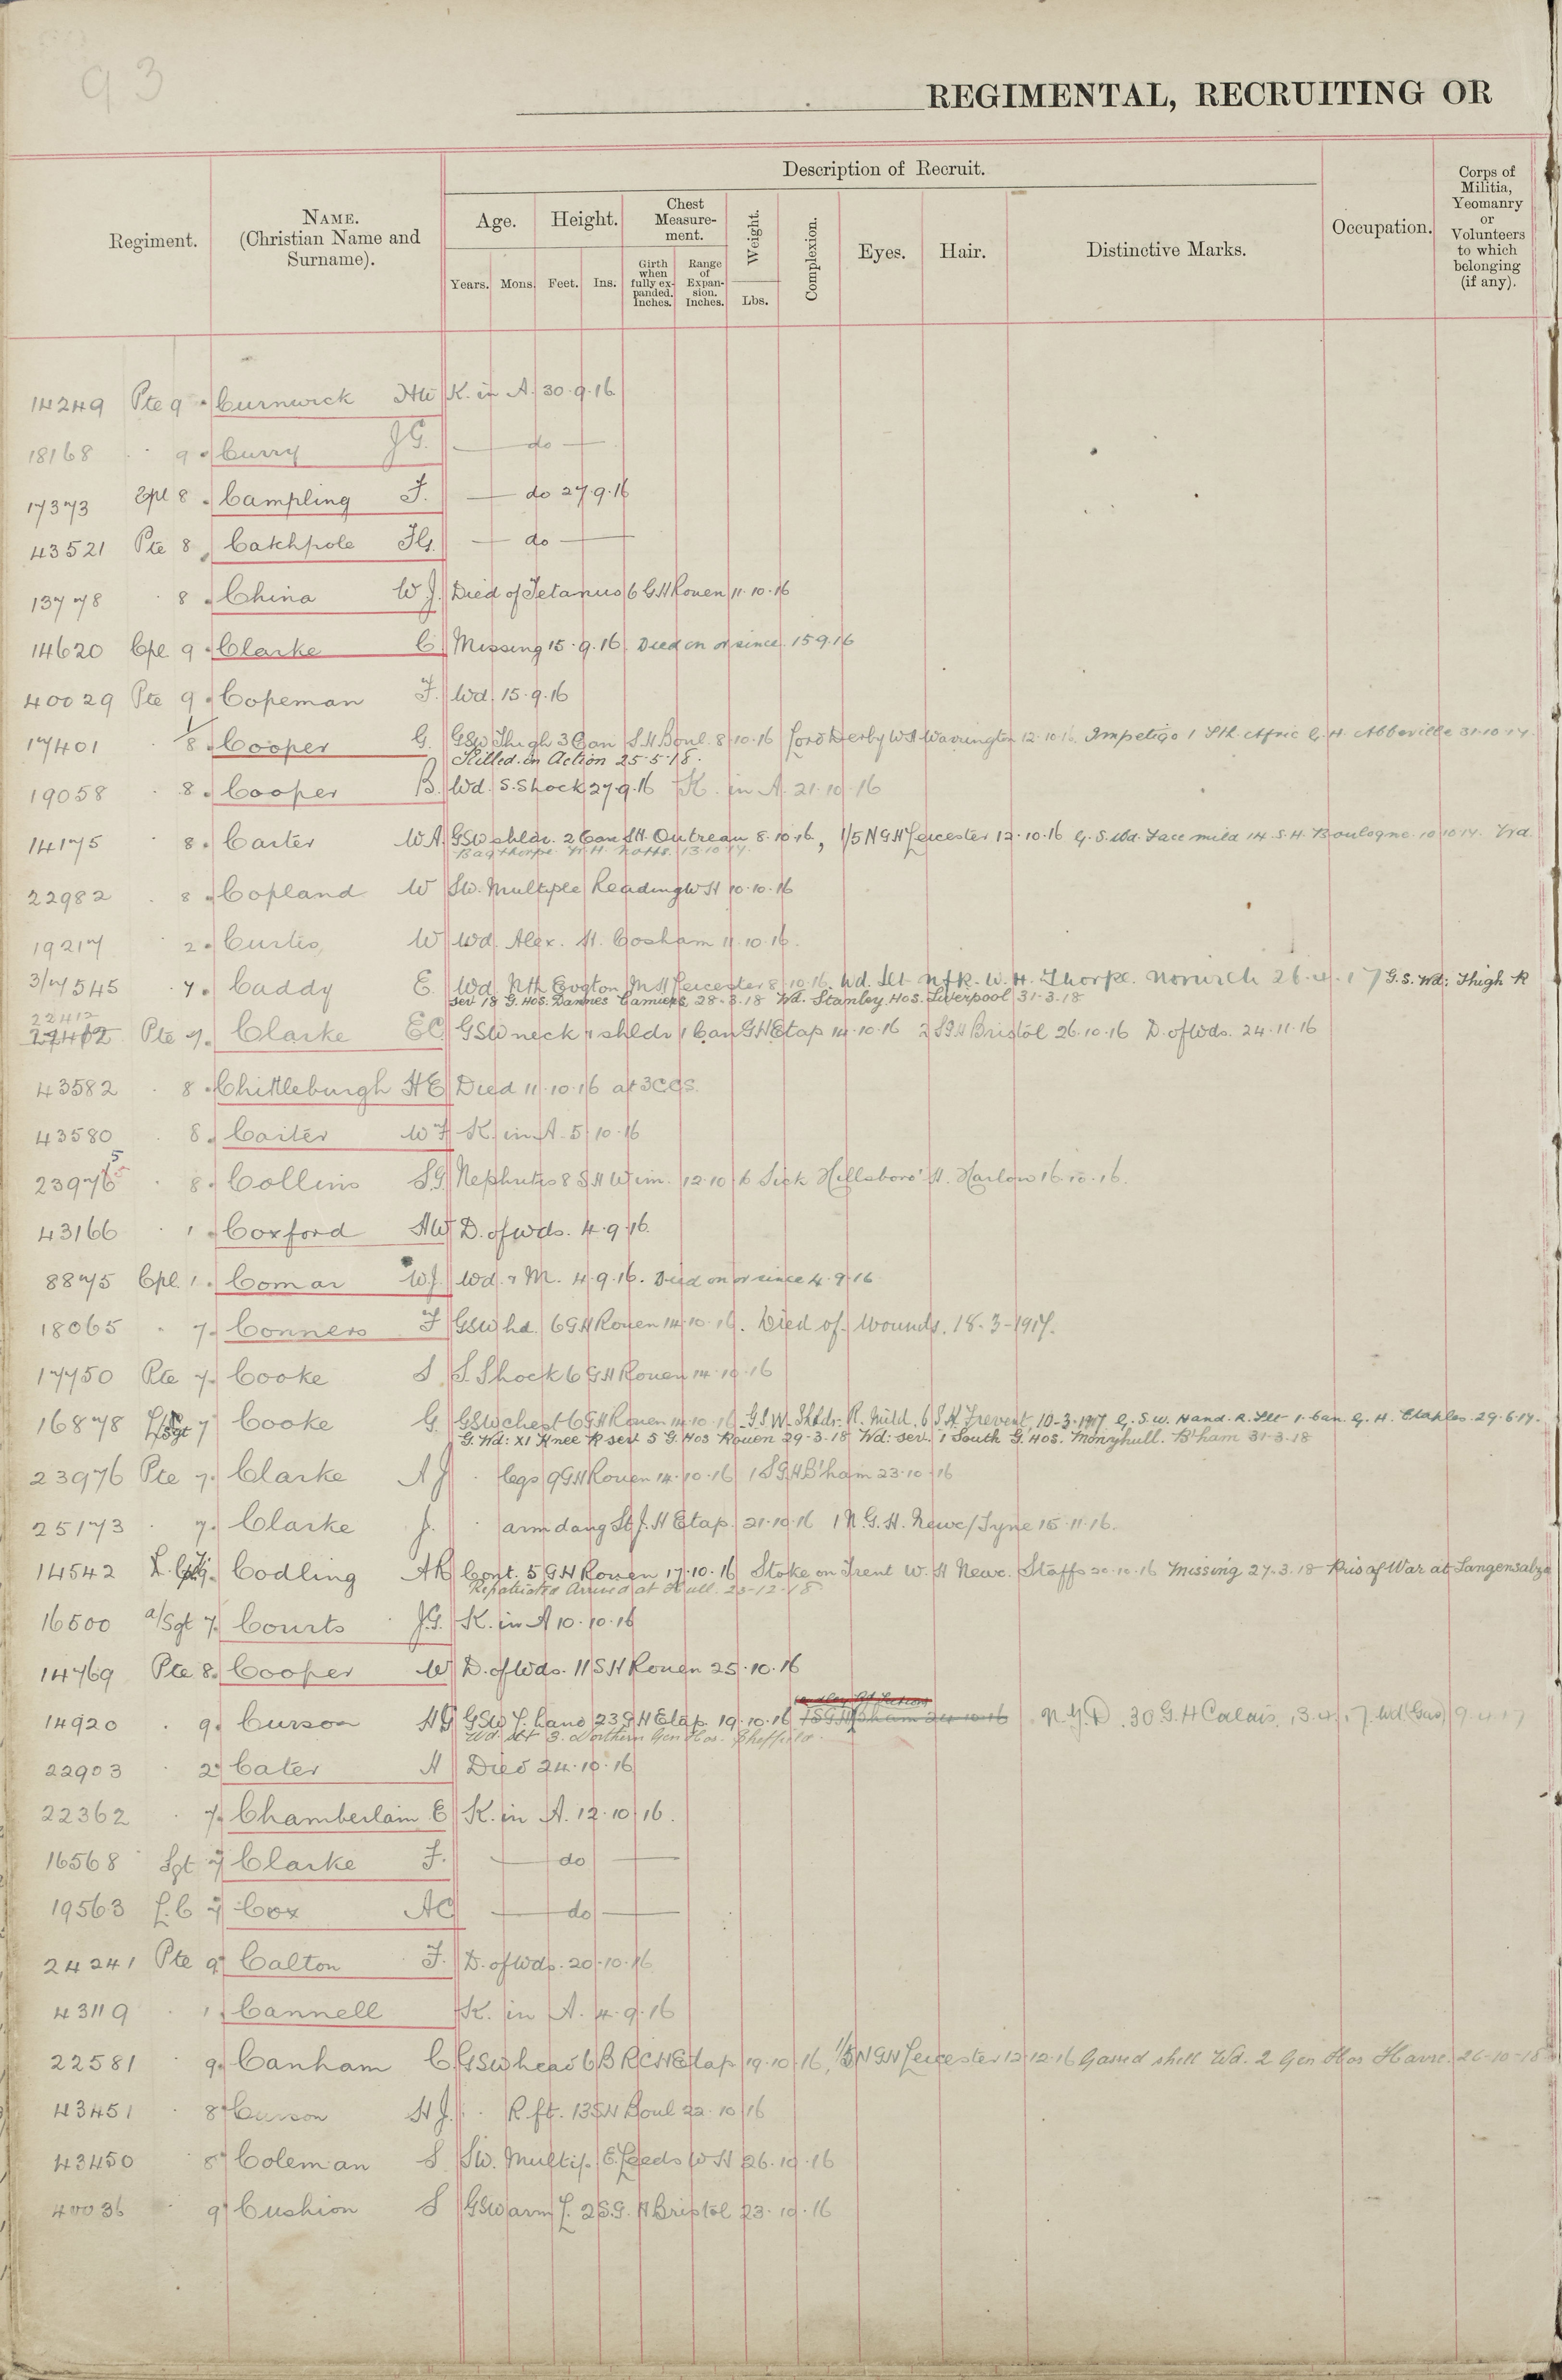 93
REGIMENTAL, RECRUITING OR
Regiment.
NAME.
(Christian Name and
Surname).
Description of Recruit.
Age.
Height.
Chest
Measure-
ment.
Weight.
Complexion.
Eyes.
Hair.
Distinctive Marks.
Occupation.
Corps of
Militia,
Yeomanry
or
Volunteers
to which
belonging
(if any).
Years.
Mons.
Feet.
Ins.
Girth
when
fully ex-
panded.
Inches.
Range
of
Expan-
sion.
Inches.
Lbs.
14249 Pte 9 Curnwick K. in A. 30.9.16
18168 " 9 Curry J G. — do —
17373 Cpl 8 Campling F. — do 27.9.16
43521 Pte 8 Catchpole — do —
13778 " 8 China W J. Died of Tetanus 6 GH Rouen 11.10.16
14620 Cpl 9 Clarke C Missing 15.9.16 Died on or since 15 9.16
40029 Pte 9 Copeman F. Wd. 15.9.16
17401 " 8 Cooper G. GSW Thigh 3 Can S.H Boul. 8.10.16 Lord Derby W H Warrington 12.10.16. Impetigo 1 Sth Afric G. H. Abbeville 31.10.17.
Killed in Action 25-5-18.
19058 " 8 Cooper B. Wd. S. Shock 27.9.16 K. in A. 21.10.16
14175 " 8 Carter W A. GSW shldr. 2 Can S.H. Outreau 8.10.16, 1/5 N G H Leicester 12.10.16 G. S. Wd. Face mild 14 S. H. Boulogne 10 10 17.
Bagthorpe M. H. Notts. 13.10.17.
22982 " 8 Copland W SW. Multiple Reading W H 10.10.16
19217 " 2 Curtis W Wd. Alex. H. Cosham 11.10.16.
3/7545 7 Caddy E. Wd Nth Evgton M H Leicester 8.10.16. Wd. Slt Nfk. W. H. Thorpe. Norwich 26.4.17 G.S. Wd: Thigh R
Sev 18 G. Hos. Dannes Camiers 28-3-18 Wd. Stanley Hos. Liverpool 31-3-18
22412
Pte 7. Clarke EC GSW neck & shldr 1 Can GH Etap 14.10.16 2 SGH Bristol 26.10.16 D. of Wds. 24.11.16
43582 " 8 Chittleburgh H E Died 11.10.16 at 3 CCS.
43580 " 8 Carter W F K. in A. 5.10.16
23975 " 8 Collins S G. Nephritis 8 S H Wim. 12.10.16 Sick Hillsboro' H. Harlow 16.10.16.
43166 " 1 Coxford AW D. of wds. 4.9.16.
8875 Cpl. 1 Comar WJ. Wd. & M. 4.9.16. Died on or since 4.9.16
18065 " 7 Conners F GSW hd. 6 GH Rouen 14.10.16. Died of Wounds. 18-3-1917.
17750 Pte 7 Cooke S S. Shock 6 GH Rouen 14.10.16
16878 7 Cooke G. GSW chest 6 GH Rouen 14.10.16 GSW. Shldr. R. Mild. 6 S H Frevent, 10-3-1917 G. S. W. Hand. R. Slt 1. Can. G. H. Etaples. 29.6.17.
G. Wd: XI Knee R sev 5 G. Hos Rouen 29-3-18 Wd: Sev. 1 South G. Hos. Monyhull. B'ham 31-3-18
23976 Pte 7 Clarke A J " legs 9 GH Rouen 14.10.16 1 SGH B'ham 23.10.16
25173 " 7 Clarke J. " arm dang St J. H Etap. 21.10.16 1 N.G.H. Newc/Tyne 15.11.16.
14542 Codling AR Cont. 5 GH Rouen 17.10.16 Stoke on Trent W. H Newc. Staffs 20.10.16 Missing 27.3.18 Pris of War at Langensalza
Repatriated Arrived at Hull. 23-12-18
16500 a/Sgt 7. Courts J.G. K. in A 10.10.16
14769 Pte 8 Cooper W D. of Wds. 11 S H Rouen 25.10.16
14920 " 9 Curson H G GSW L. hand 23 GH Etap. 19.10.16 N.Y.D. 30 G. H Calais. 13.4.17 Wd (Gas) 9.4.17
Wd. Slt 3. Northern Gen Hos. Sheffield.
22903 " 2 Cater H Died 24.10.16
22362 " 7 Chamberlain E K. in A. 12.10.16.
16568 Sgt 7 Clarke F. — do —
19563 L.C 7 Cox AC — do —
24241 Pte 9 Calton F. D. of Wds. 20.10.16
43119 " 1 Cannell K. in A. 4.9.16
22581 " 9 Canham C. GSW head 6 B R C H Etap 19.10.16, 1/5 N GH Leicester 12.12.16 Gassed shell Wd. 2 Gen Hos Havre. 26-10-18
43451 " 8 Curson H J. " R ft. 13 SH Boul 22.10.16
43450 8 Coleman S SW. Multip. E. Leeds W H 26.10.16
40036 " 9 Cushion S GSW arm L. 2 S.G. H Bristol 23.10.16